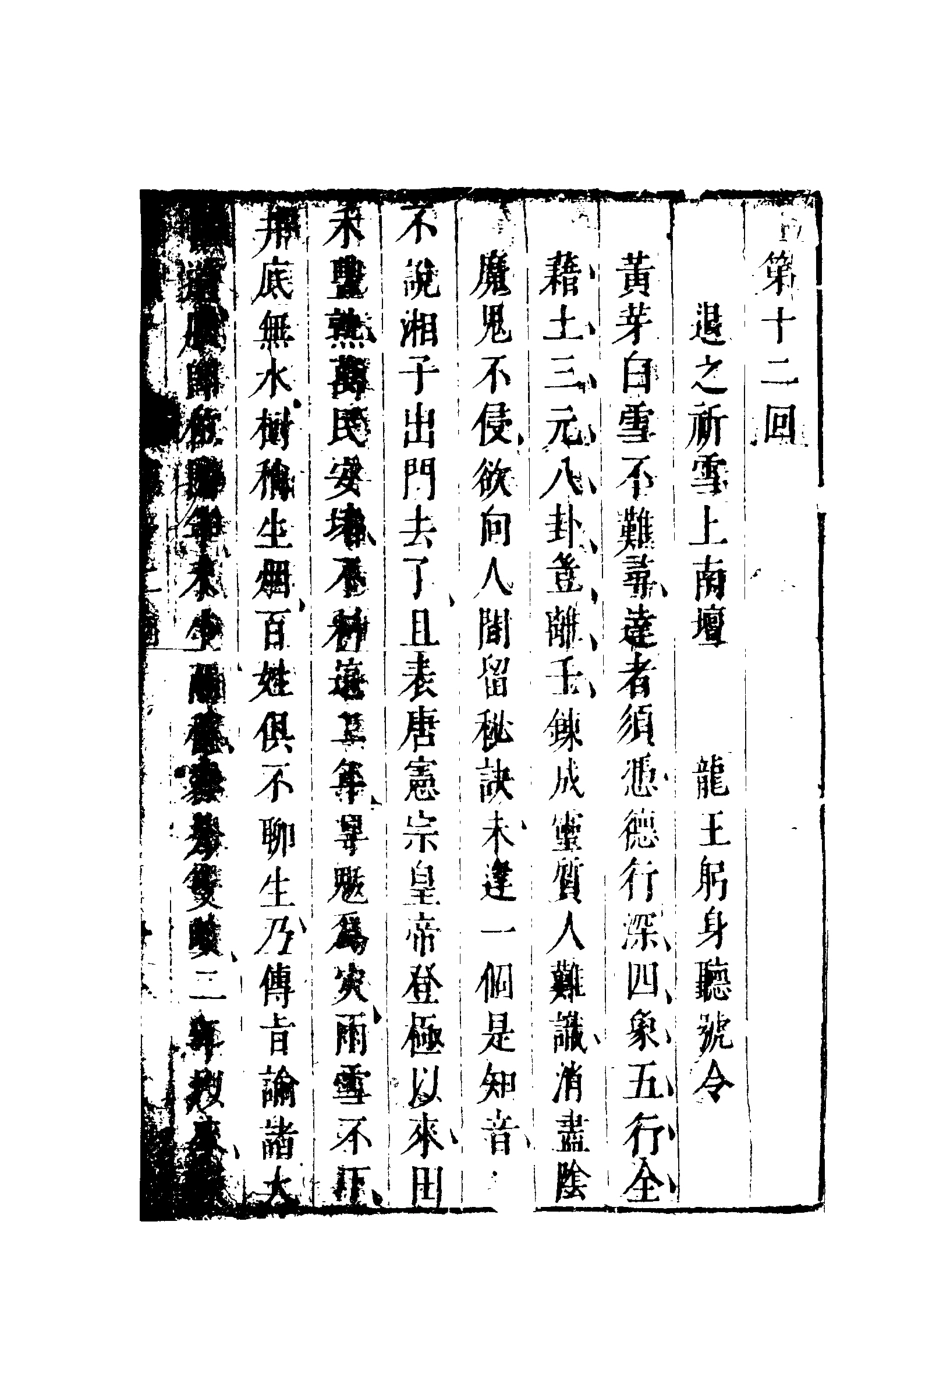 第十二回
退之祈雪上南壇 龍王躬身聽號令
黃芽白雪不難尋達者須憑德行深四象五行全
藉土三元八卦豈離壬鍊成靈質人難識消盡陰
魔鬼不侵欲向人間留秘訣未逢一個是知音
不說湘子出門去了且表唐憲宗皇帝登極以來田
禾豐熟萬民安堵不料這二年旱魃爲灾雨雪不下
井底無水樹稍生烟百姓俱不聊生乃傳旨諭諸大
二年